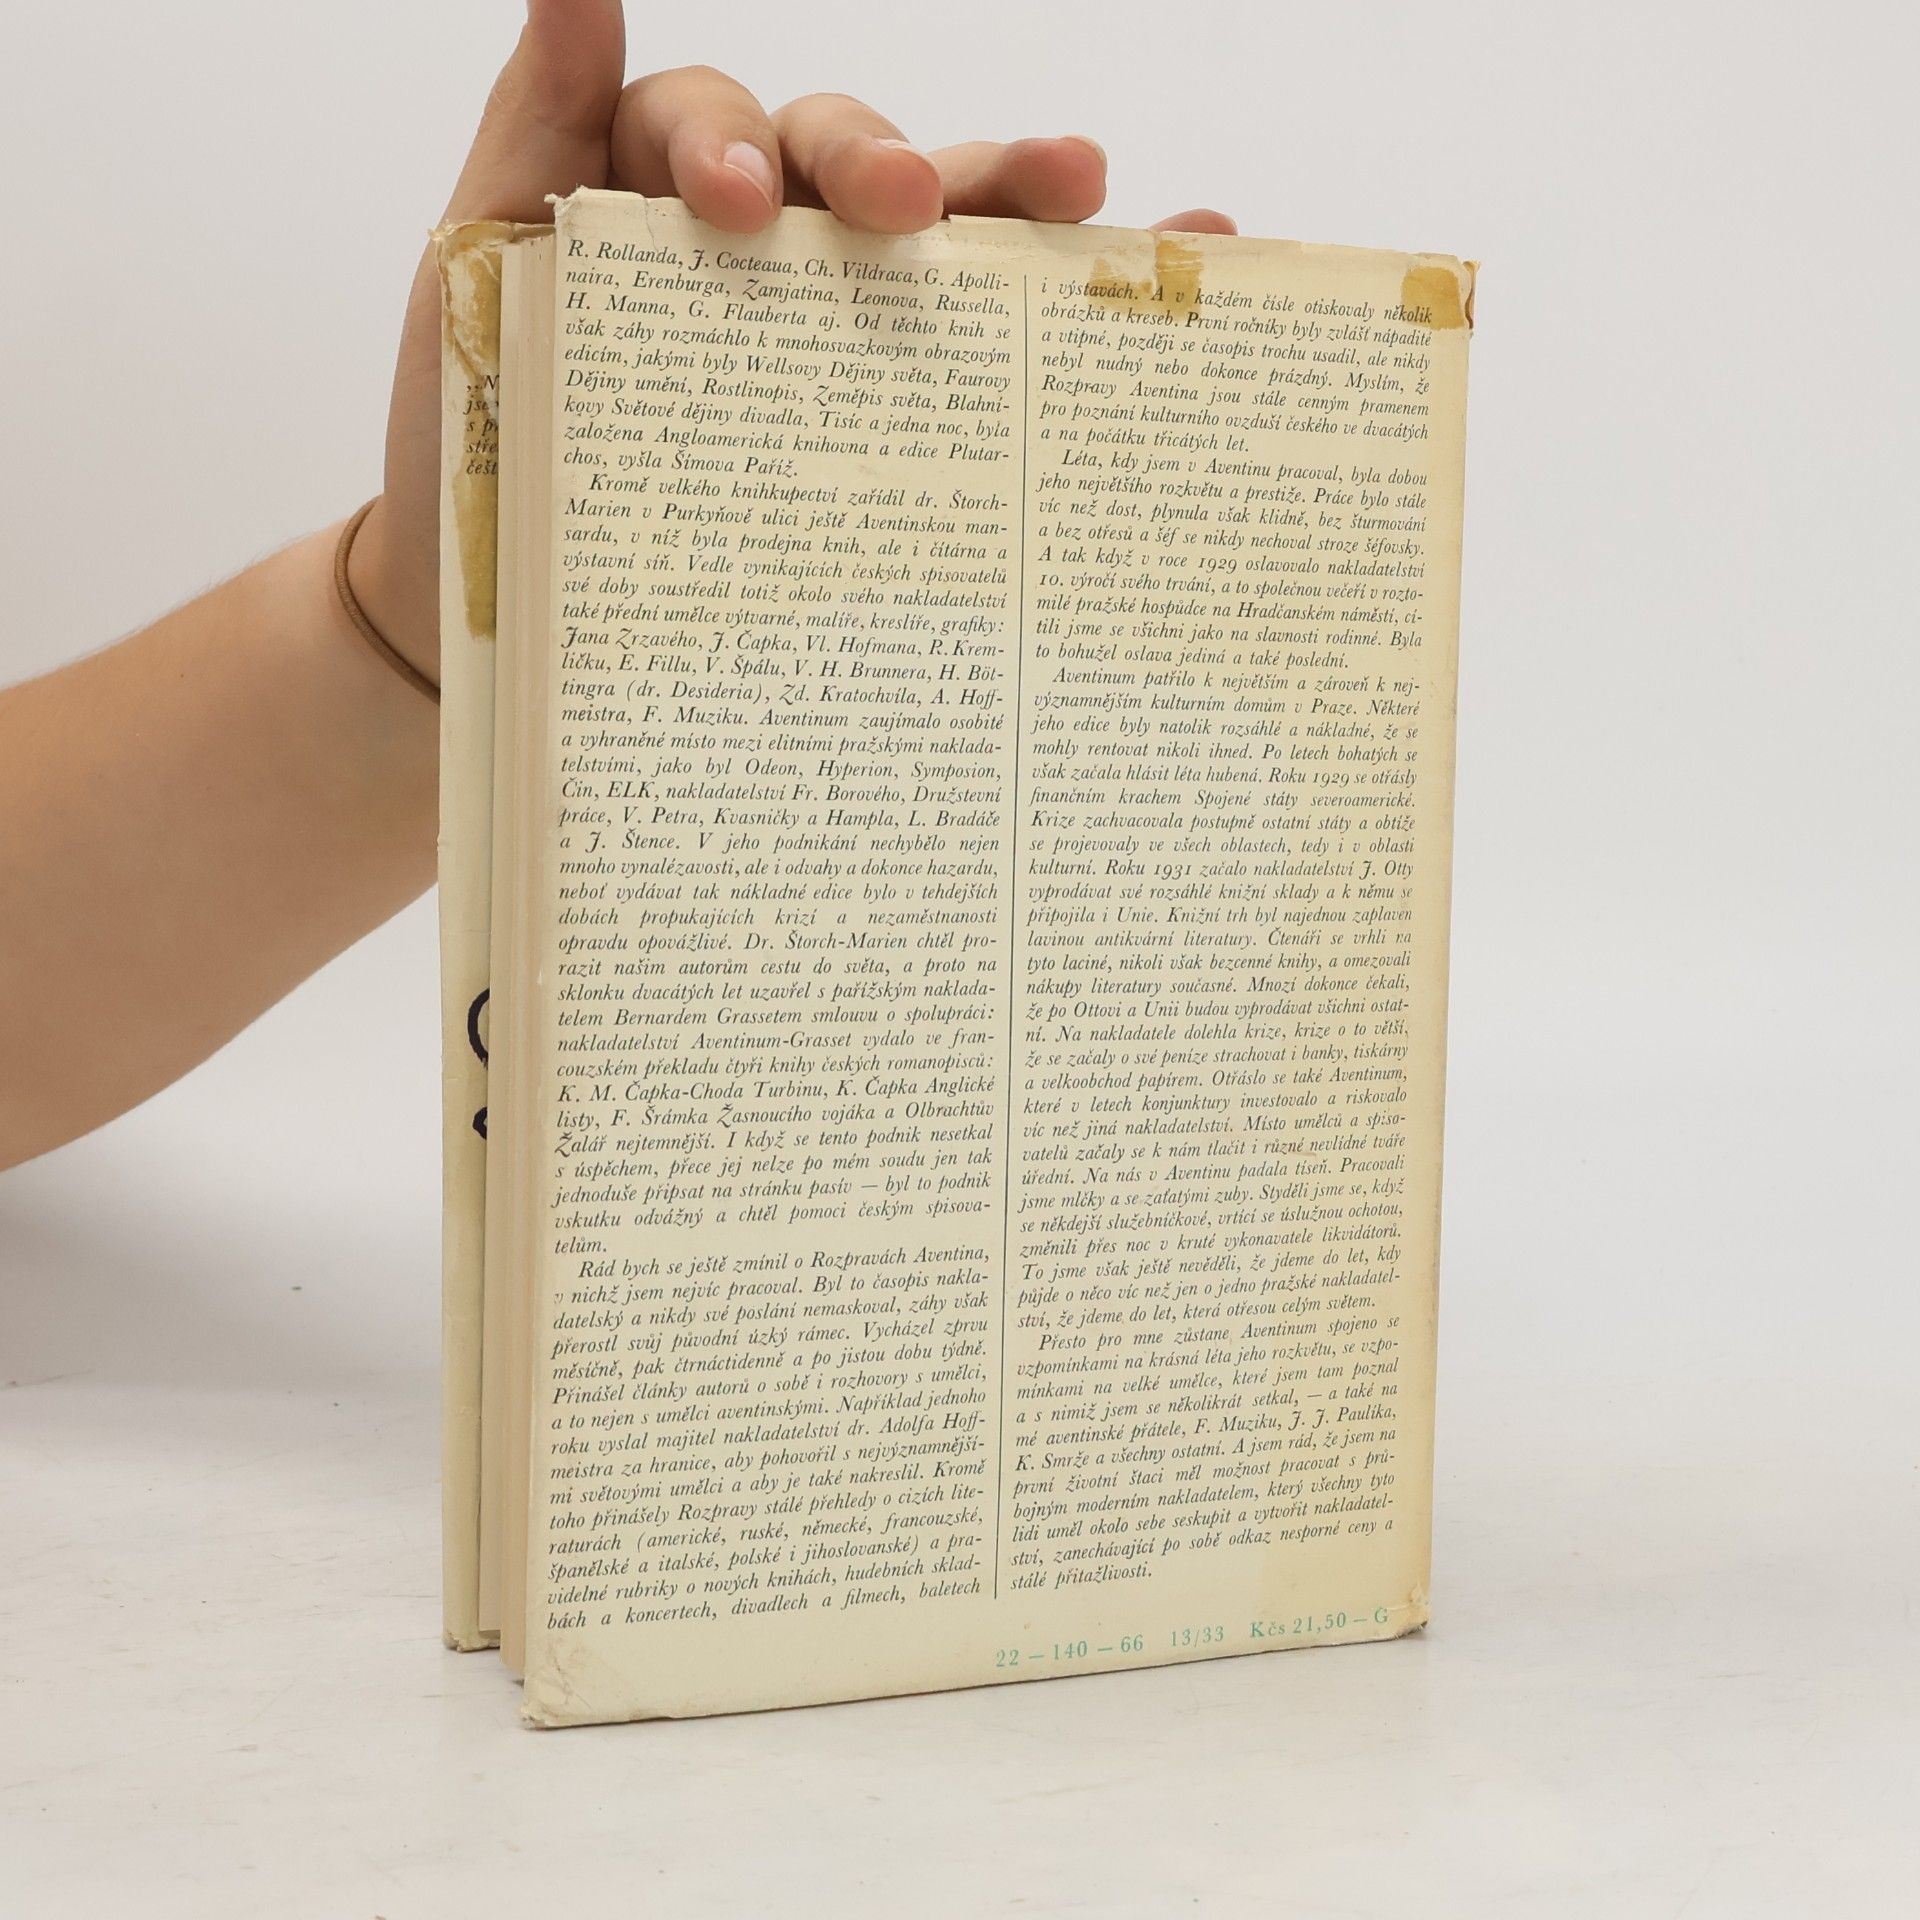 R. Rollanda, J. Cocteaua, Ch. Vildraca, G. Apolli-
naira, Erenburga, Zamjatina, Leonova, Russella,
H. Manna, G. Flauberta aj. Od těchto knih se
však záhy rozmáchlo k mnohosvazkovým obrazovým
edicím, jakými byly Wellsovy Dějiny světa, Faurovy
Dějiny umění, Rostlinopis, Zeměpis světa, Blahní-
kovy Světové dějiny divadla, Tisíc a jedna noc, byla
založena Angloamerická knihovna a edice Plutar-
chos, vyšla Šímova Paříž.
Kromě velkého knihkupectví zařídil dr. Štorch-
Marien v Purkyňově ulici ještě Aventinskou man-
sardu, v níž byla prodejna knih, ale i čítárna a
výstavní síň. Vedle vynikajících českých spisovatelů
své doby soustředil totiž okolo svého nakladatelství
také přední umělce výtvarné, malíře, kreslíře, grafiky:
Jana Zrzavého, J. Čapka, Vl. Hofmana, R. Krem-
ličku, E. Fillu, V. Špálu, V. H. Brunnera, H. Böt-
tingra (dr. Desideria), Zd. Kratochvíla, A. Hoff-
meistra, F. Muziku. Aventinum zaujímalo osobité
a vyhraněné místo mezi elitními pražskými naklada-
telstvími, jako byl Odeon, Hyperion, Symposion,
Čin, ELK, nakladatelství Fr. Borového, Družstevní
práce, V. Petra, Kvasničky a Hampla, L. Bradáče
a J. Štence. V jeho podnikání nechybělo nejen
mnoho vynalézavosti, ale i odvahy a dokonce hazardu,
neboť vydávat tak nákladné edice bylo v tehdejších
dobách propukajících krizí a nezaměstnanosti
opravdu opovážlivé. Dr. Štorch-Marien chtěl pro-
razit našim autorům cestu do světa, a proto na
sklonku dvacátých let uzavřel s pařížským naklada-
telem Bernardem Grassetem smlouvu o spolupráci:
nakladatelství Aventinum-Grasset vydalo ve fran-
couzském překladu čtyři knihy českých romanopisců:
K. M. Čapka-Choda Turbinu, K. Čapka Anglické
listy, F. Šrámka Žasnoucího vojáka a Olbrachtův
Žalář nejtemnější. I když se tento podnik nesetkal
s úspěchem, přece jej nelze po mém soudu jen tak
jednoduše připsat na stránku pasív — byl to podnik
vskutku odvážný a chtěl pomoci českým spisova-
telům.
Rád bych se ještě zmínil o Rozpravách Aventina,
v nichž jsem nejvíc pracoval. Byl to časopis nakla-
datelský a nikdy své poslání nemaskoval, záhy však
přerostl svůj původní úzký rámec. Vycházel zprvu
měsíčně, pak čtrnáctidenně a po jistou dobu týdně.
Přinášel články autorů o sobě i rozhovory s umělci,
a to nejen s umělci aventinskými. Například jednoho
roku vyslal majitel nakladatelství dr. Adolfa Hoff-
meistra za hranice, aby pohovořil s nejvýznamnější-
mi světovými umělci a aby je také nakreslil. Kromě
toho přinášely Rozpravy stálé přehledy o cizích lite-
raturách (americké, ruské, německé, francouzské,
španělské a italské, polské i jihoslovanské) a pra-
videlné rubriky o nových knihách, hudebních sklad-
bách a koncertech, divadlech a filmech, baletech
i výstavách. A v každém čísle otiskovaly několik
obrázků a kreseb. První ročníky byly zvlášť nápadité
a vtipné, později se časopis trochu usadil, ale nikdy
nebyl nudný nebo dokonce prázdný. Myslím, že
Rozpravy Aventina jsou stále cenným pramenem
pro poznání kulturního ovzduší českého ve dvacátých
a na počátku třicátých let.
Léta, kdy jsem v Aventinu pracoval, byla dobou
jeho největšího rozkvětu a prestiže. Práce bylo stále
víc než dost, plynula však klidně, bez šturmování
a bez otřesů a šéf se nikdy nechoval stroze šéfovsky.
A tak když v roce 1929 oslavovalo nakladatelství
10. výročí svého trvání, a to společnou večeří v rozto-
milé pražské hospůdce na Hradčanském náměstí, cí-
tili jsme se všichni jako na slavnosti rodinné. Byla
to bohužel oslava jediná a také poslední.
Aventinum patřilo k největším a zároveň k nej-
významnějším kulturním domům v Praze. Některé
jeho edice byly natolik rozsáhlé a nákladné, že se
mohly rentovat nikoli ihned. Po letech bohatých se
však začala hlásit léta hubená. Roku 1929 se otřásly
finančním krachem Spojené státy severoamerické.
Krize zachvacovala postupně ostatní státy a obtíže
se projevovaly ve všech oblastech, tedy i v oblasti
kulturní. Roku 1931 začalo nakladatelství J. Otty
vyprodávat své rozsáhlé knižní sklady a k němu se
připojila i Unie. Knižní trh byl najednou zaplaven
lavinou antikvární literatury. Čtenáři se vrhli na
tyto laciné, nikoli však bezcenné knihy, a omezovali
nákupy literatury současné. Mnozí dokonce čekali,
že po Ottovi a Unii budou vyprodávat všichni ostat-
ní. Na nakladatele dolehla krize, krize o to větší,
že se začaly o své peníze strachovat i banky, tiskárny
a velkoobchod papírem. Otřáslo se také Aventinum,
které v letech konjunktury investovalo a riskovalo
víc než jiná nakladatelství. Místo umělců a spiso-
vatelů začaly se k nám tlačit i různé nevlídné tváře
úřední. Na nás v Aventinu padala tíseň. Pracovali
jsme mlčky a se zaťatými zuby. Styděli jsme se, když
se někdejší služebníčkové, vrtící se úslužnou ochotou,
změnili přes noc v kruté vykonavatele likvidátorů.
To jsme však ještě nevěděli, že jdeme do let, kdy
půjde o něco víc než jen o jedno pražské nakladatel-
ství, že jdeme do let, která otřesou celým světem.
Přesto pro mne zůstane Aventinum spojeno se
vzpomínkami na krásná léta jeho rozkvětu, se vzpo-
mínkami na velké umělce, které jsem tam poznal
a s nimiž jsem se několikrát setkal, — a také na
mé aventinské přátele, F. Muziku, J. J. Paulíka,
K. Smrže a všechny ostatní. A jsem rád, že jsem na
první životní štaci měl možnost pracovat s prů-
bojným moderním nakladatelem, který všechny tyto
lidi uměl okolo sebe seskupit a vytvořit nakladatel-
ství, zanechávající po sobě odkaz nesporné ceny a
stálé přitažlivosti.
22 — 140 — 66 13/33 Kčs 21,50 — G